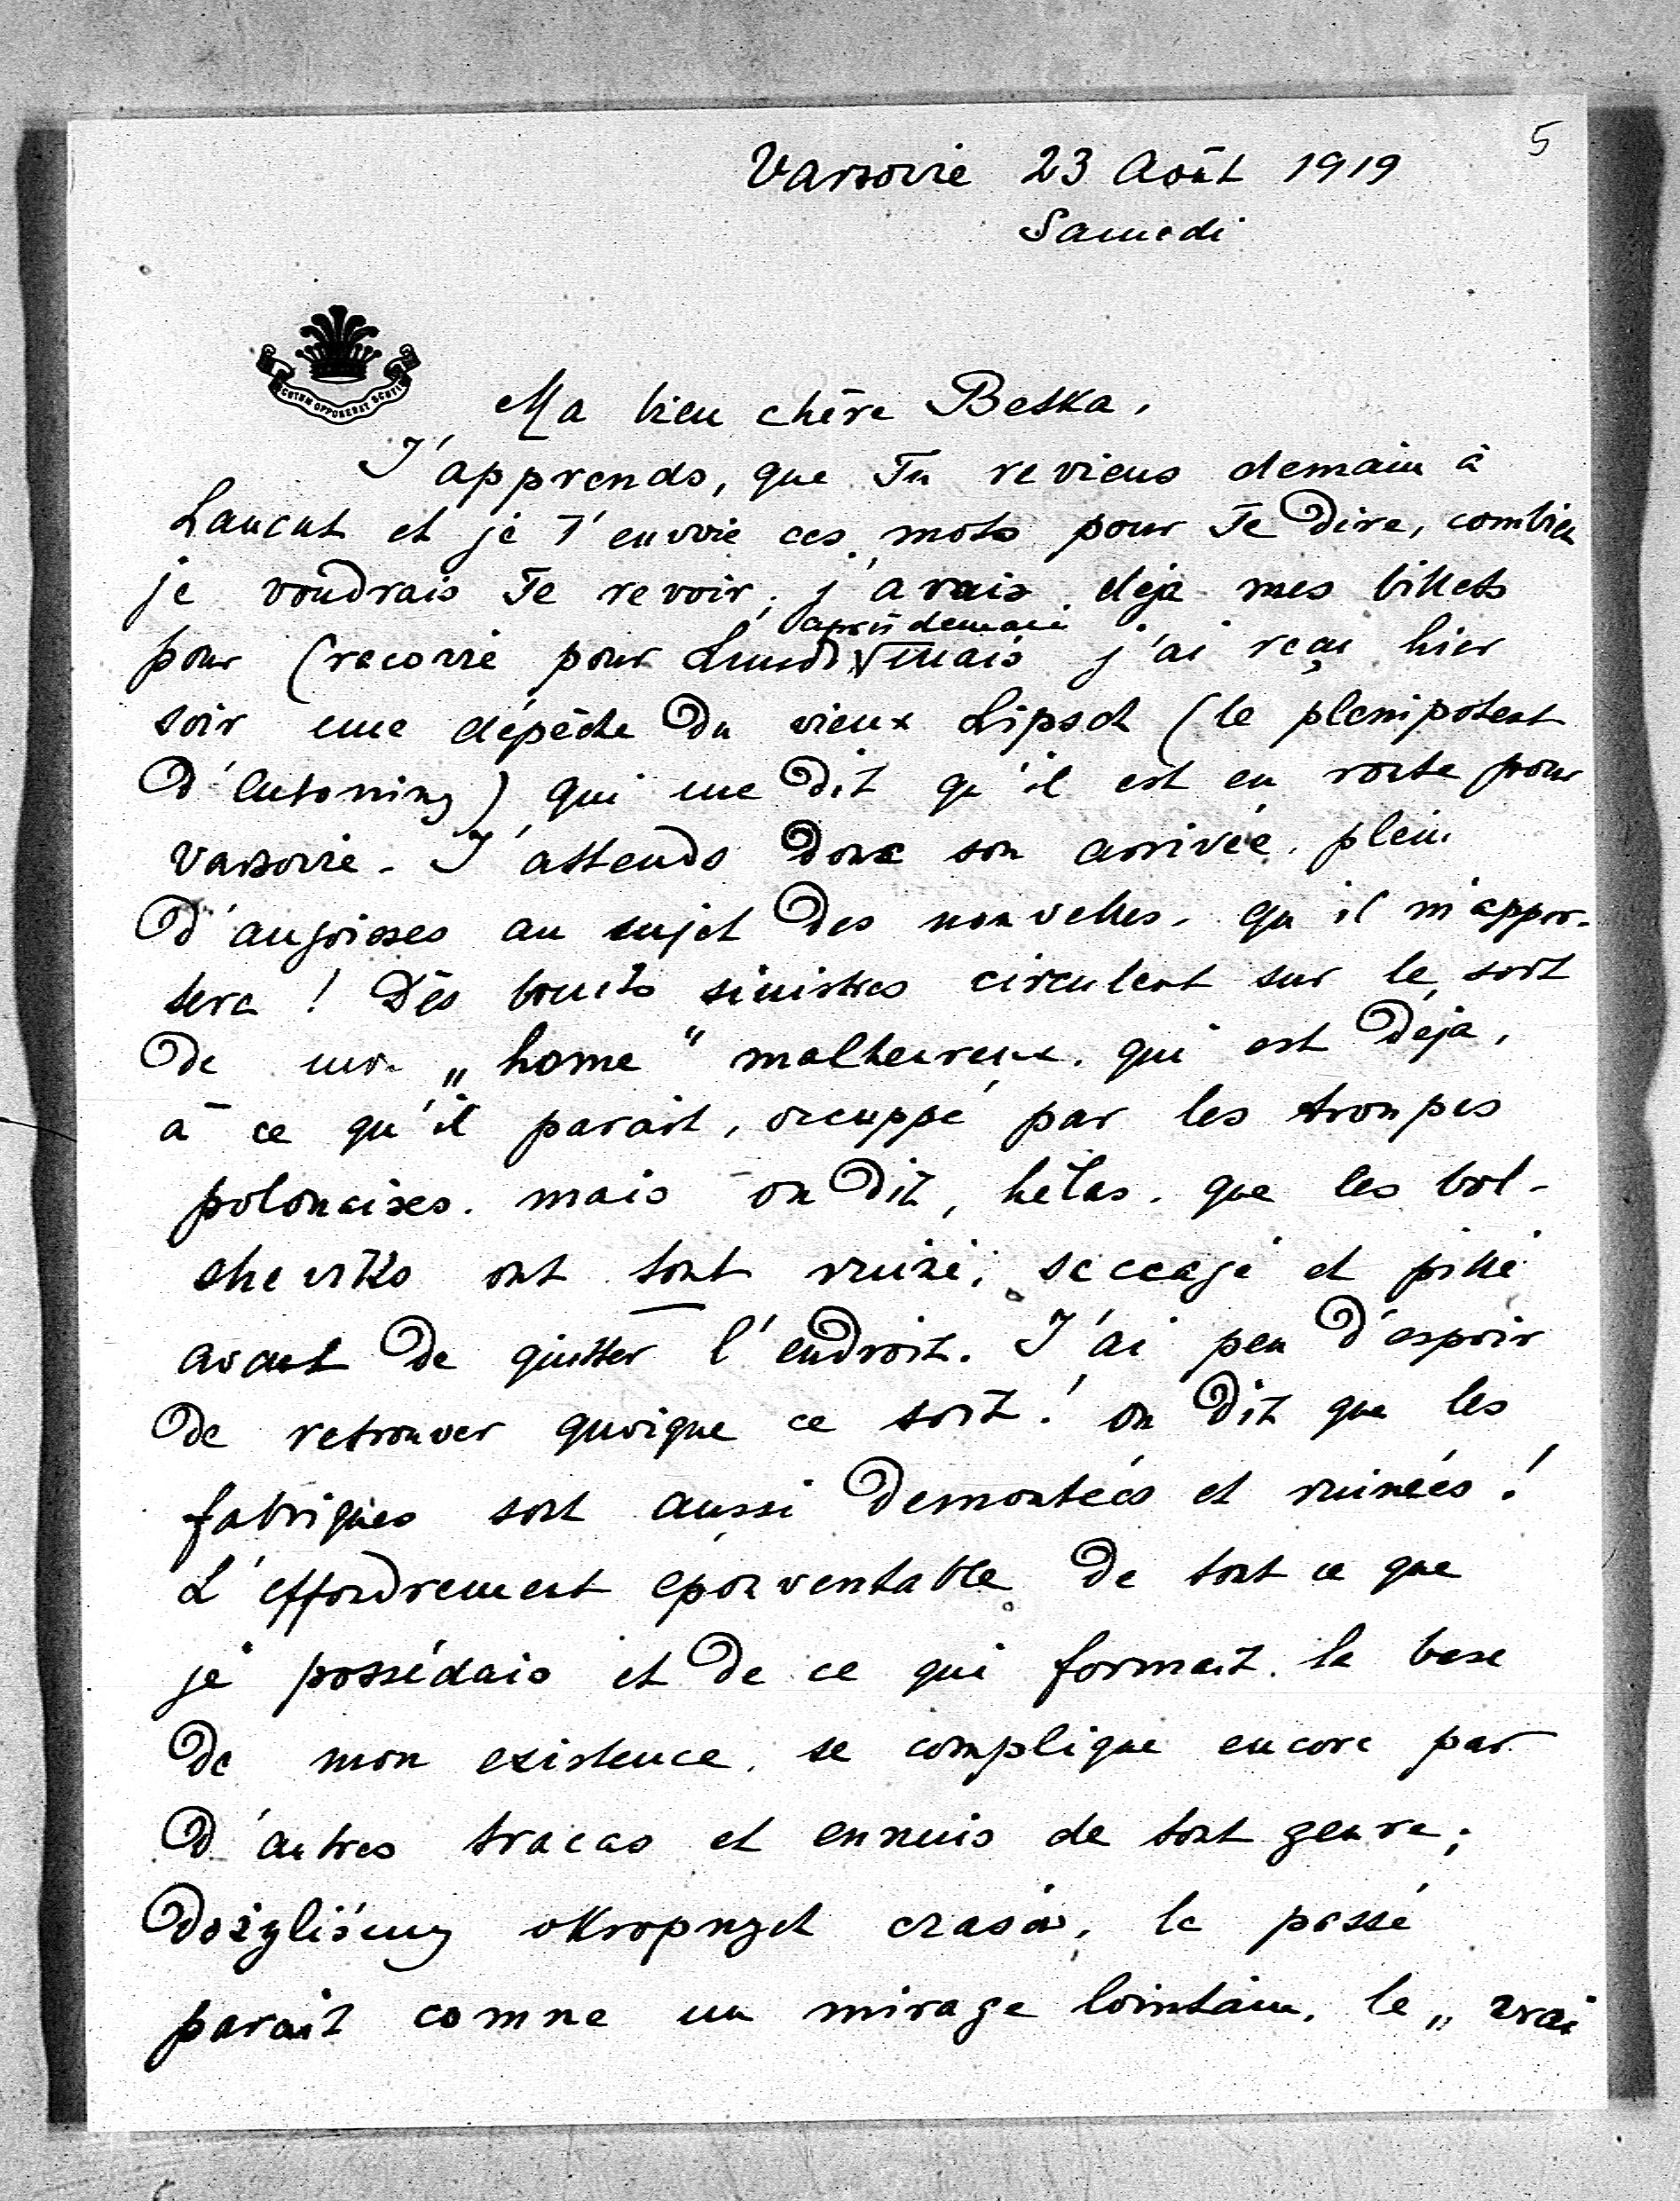 5
Varsovie 23 Août 1919
Samedi
SCUTUM OPPONEBAT SCUTI
Ma bien chère Betka,
J'apprends, que Tu reviens demain à
Lancut et je T'envoie ces mots pour Te Dire, combien
je voudrais Te revoir; j'avais déja mes billets
après demain
pour Cracovie pour Lundi mais j'ai reçu hier
soir une dépêche Du vieux Lipsch (le plenipotent
D'Antoniny) qui me Dit qu'il est en route pour
Varsovie. J'attends Donc son arrivée, plein
D'angoisses au sujet Des nouvelles, qu'il m'appor-
tera ! Des bruits sinistres circulent sur le sort
De mon „home" malheureux, qui est Déja,
à ce qu'il parait, occuppé par les troupes
polonaises, mais on Dit, hélas, que les bol-
sheviks ont tout ruiné, saccagé et pillé
avant De quitter l'endroit. J'ai peu D'espoir
De retrouver quoique ce soit! on Dit que les
fabriques sont aussi Demontées et ruinées!
L'effondrement épouventable De tout ce que
je possédais et De ce qui formait la base
De mon existence, se complique encore par
D'autres tracas et ennuis de tout genre;
Dożyliśmy okropnych czasów, le passé
parait comme un mirage lointain, le „vrai